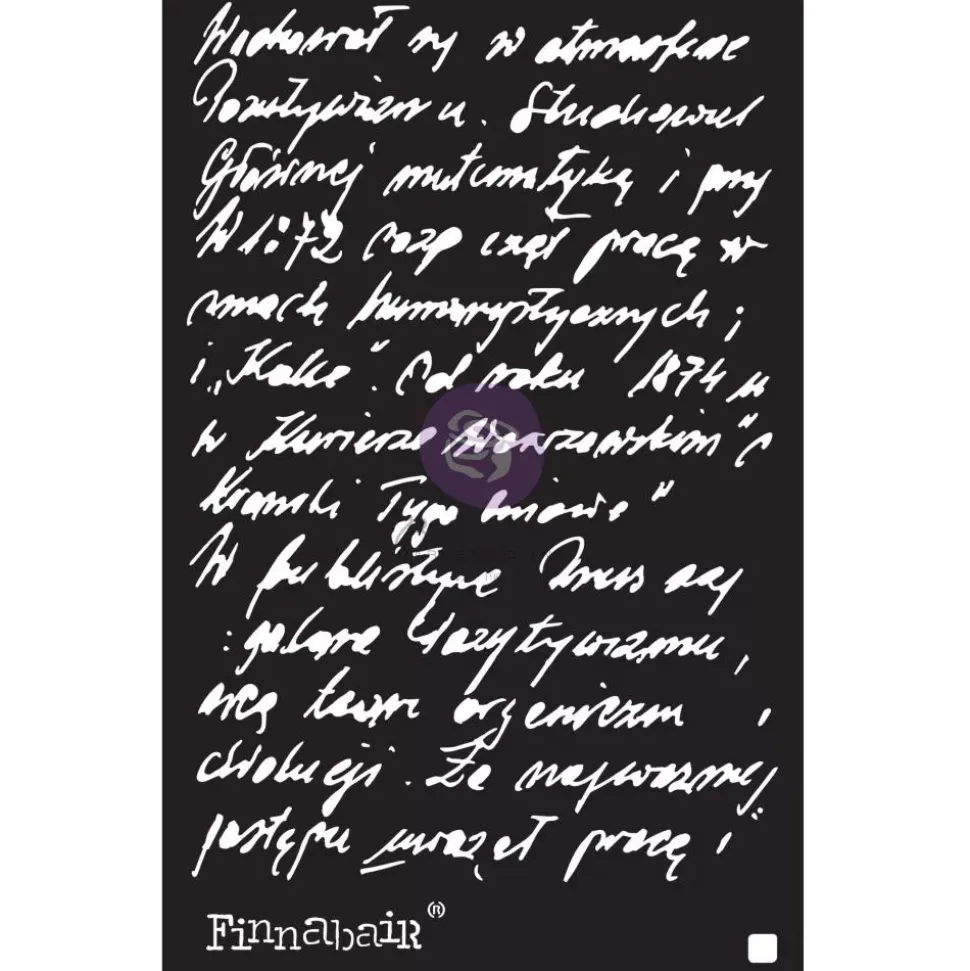 Wychował się w atmosferze
Pozytywizmu. Studiował
Głównej matematykę i przy
W 1872 rozpoczął pracę w
smach humorystycznych ;
i „Kolce". Od roku 1874 u
w Kurierze Warszawskim"
Kroniki Tygodniowe"
W publicystyce Prus
Pozytywizmu,
organizmu i
ewolucji. Za najważniej
postępu uważał pracę i
Finnabair ®